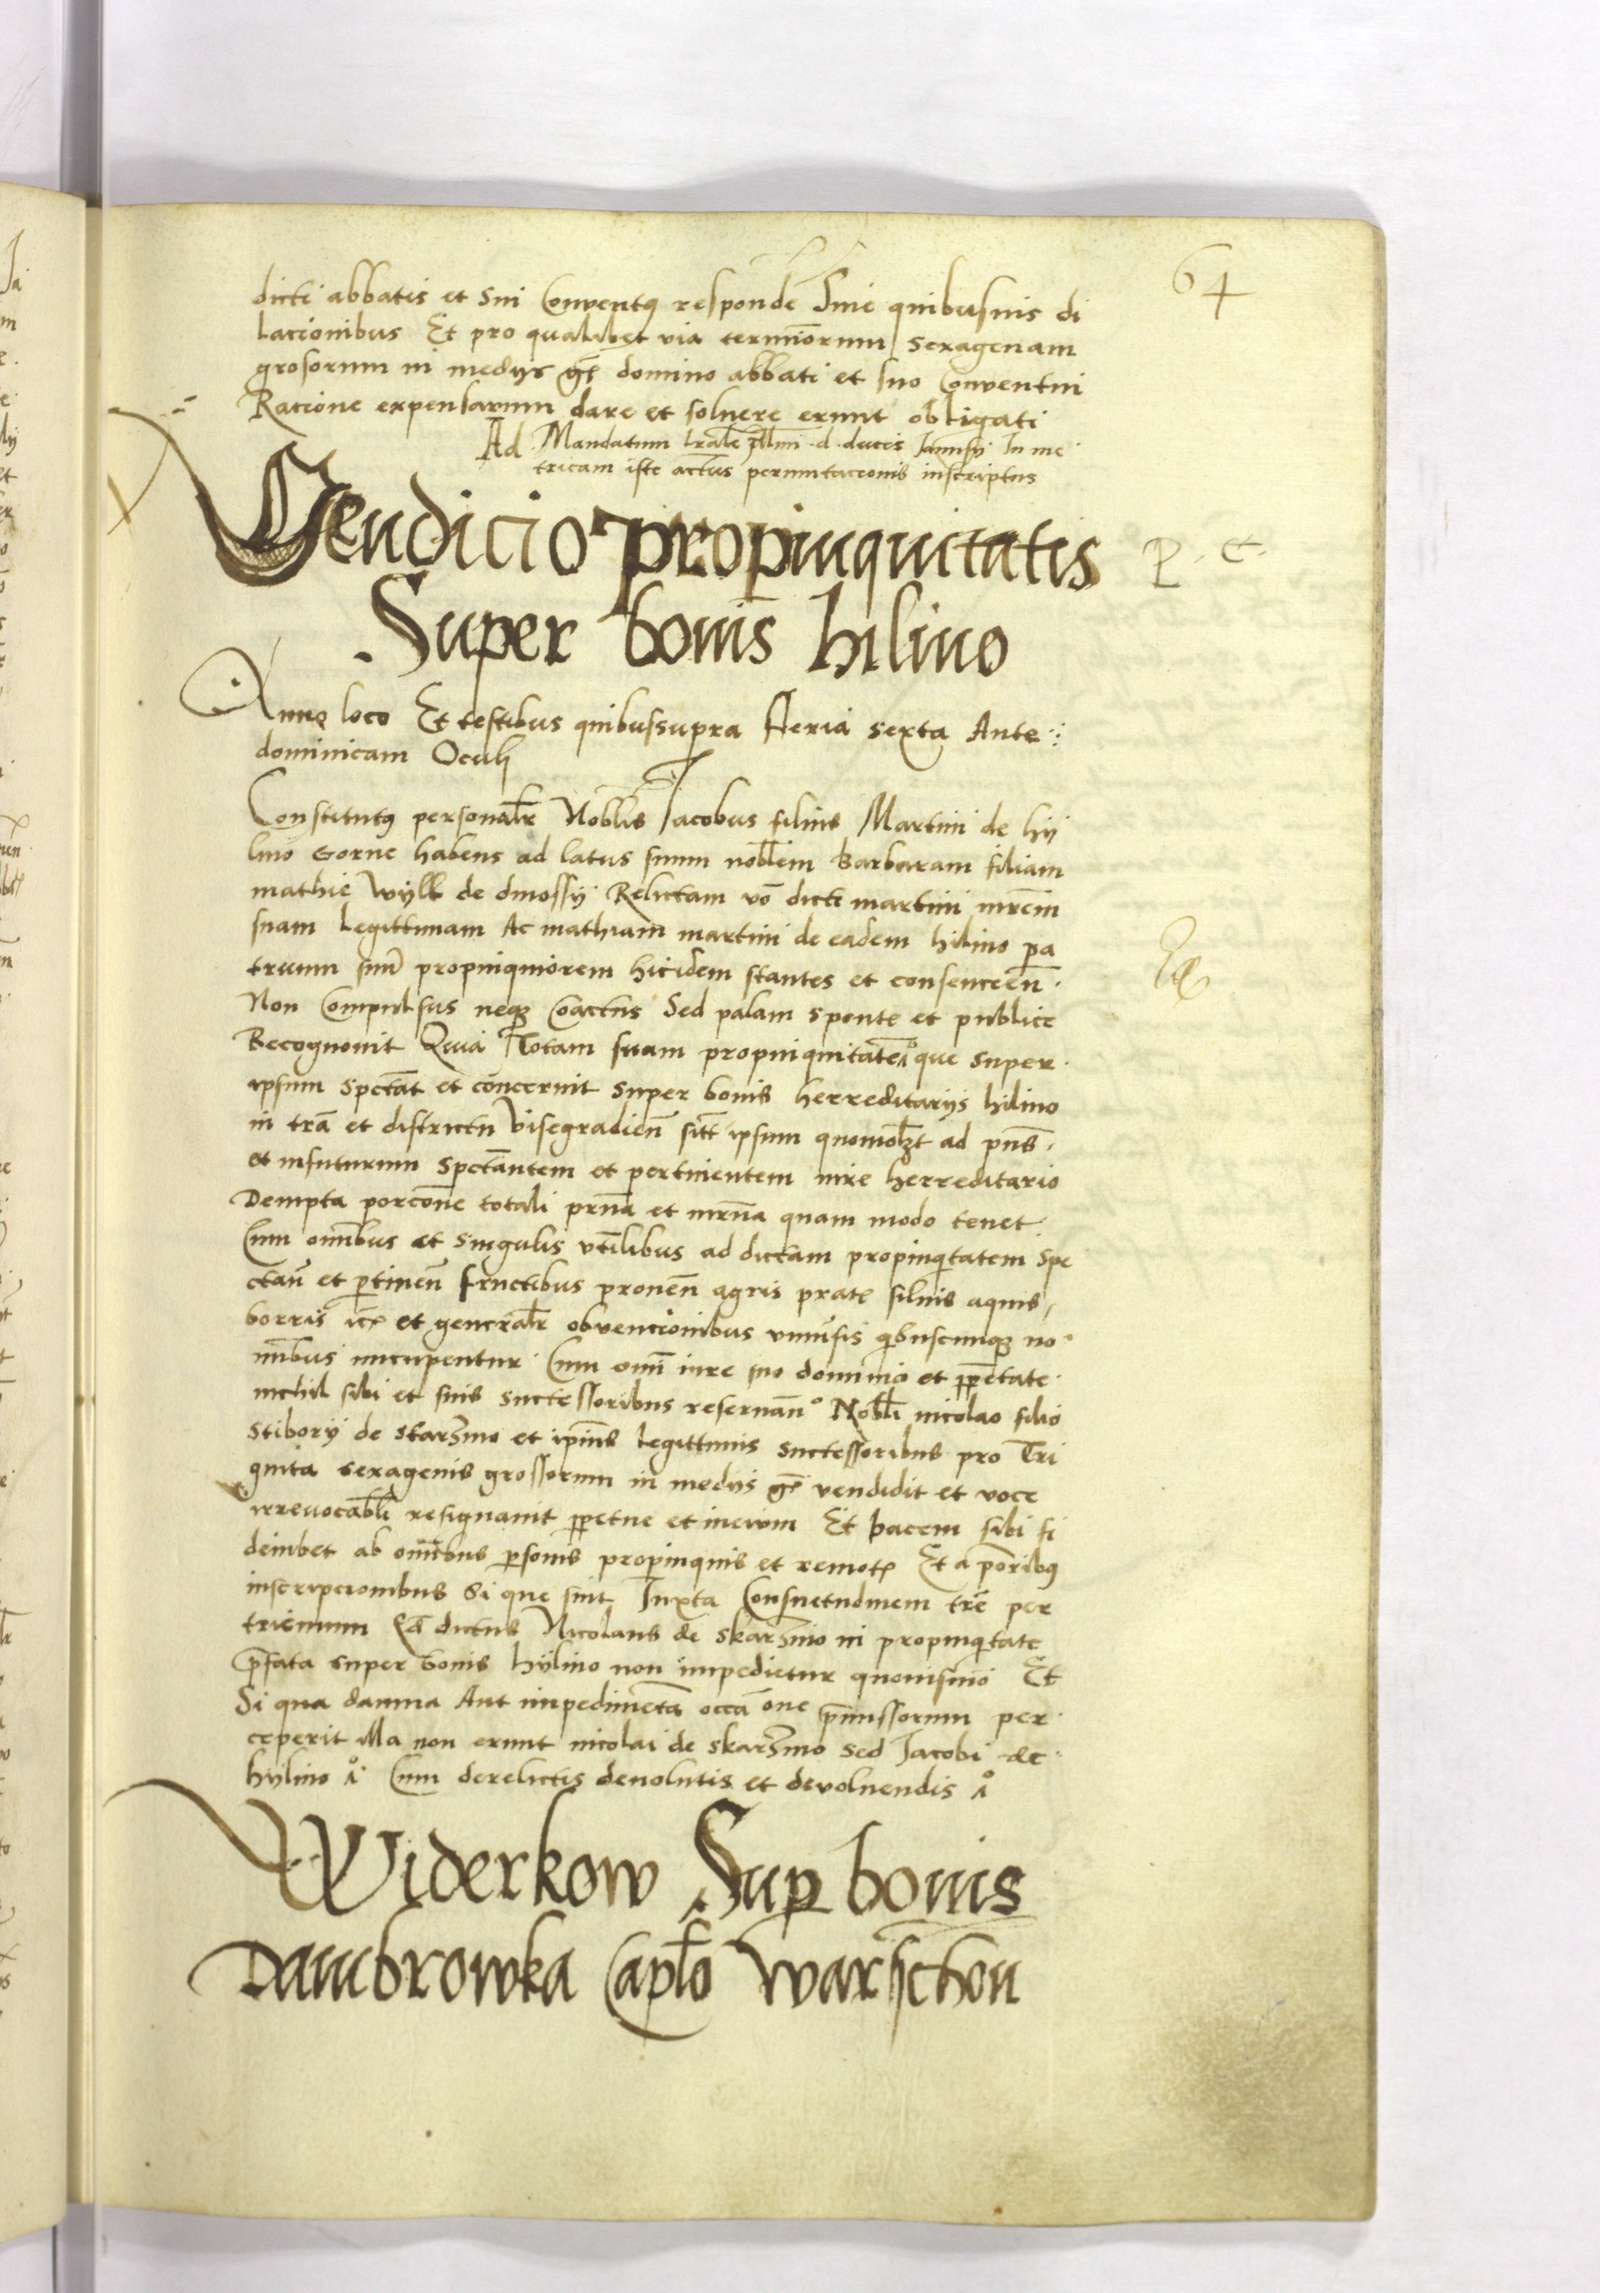 64
dicti abbatis et sui Conventq responde Sine quibusuis di
lacionibus Et pro qualibet via terminorum sexagenam
grosorum in medijs gs domino abbati et suo Conventui
Ratione expensarum dare et soluere erunt obligati
Ad Mandatum lrale Illmi d. ducis Janusij In me
tricam iste actus permutacionis inscriptus
Vendicio propinquitatis
Super bonis hilino
P. et.
Anno loco Et testibus quibussupra Feria sexta Ante
dominicam Oculi
Constitutq personalr Noblis Jacobus filius Martini de hy
lino Gorne habens ad latus suum noblem Barbaram filiam
mathie wyll de dmossij Relictam vo dicti martini mrem
suam Legittimam Ac mathiam martini de eadem hilino pa
truum suu propinquiorem hicidem stantes et consencien
Non Compulsus neq Coactus Sed palam sponte et publice
Recognouit Quia Totam suam propinquitate que super
ipsum spectat et concernit super bonis herreditarijs hilino
in tra et districtu Visegradien sitt ipsum quomolzt ad pns
et infuturum spectantem et pertinentem iure herreditario
Dempta porcone totali prna et mrna quam modo tenet
Cum omibus et singulis vtilibus ad dictam propinqitatem spe
ctan et ptinen fructibus prouen agris prat siluis aquis
borris ic et generalr obvencionibus vniusis qibuscunq no
mibus nucupentur Cum omi iure suo dominio et ppetate
nichil sibi et suis successoribus reseruan Nobli nicolao filio
Stiborij de skarzino et ipius legittimis successoribus pro Tri
ginta sexagenis grossorum in medijs gs vendidit et voce
irreuocabli resignauit ppetue et ineuum Et pacem sibi fi
deiubet ab omibus psonis propinquis et remot Et a poribq
inscripcionibus si que sint Juxta Consuetudinem tre per
trienium Qd dictus Nicolaus de skarzino in propinqitate
pfata super bonis hylino non impedietur quouismo Et
Si qua damna Aut impedimeta occaone pmissorum per
ceperit illa non erunt nicolai de skarzino sed Jacobi de
hylino Cum derelictis deuolutis et devoluendis
Widerkow Sup bonis
Dambrowka Caplo Warschou